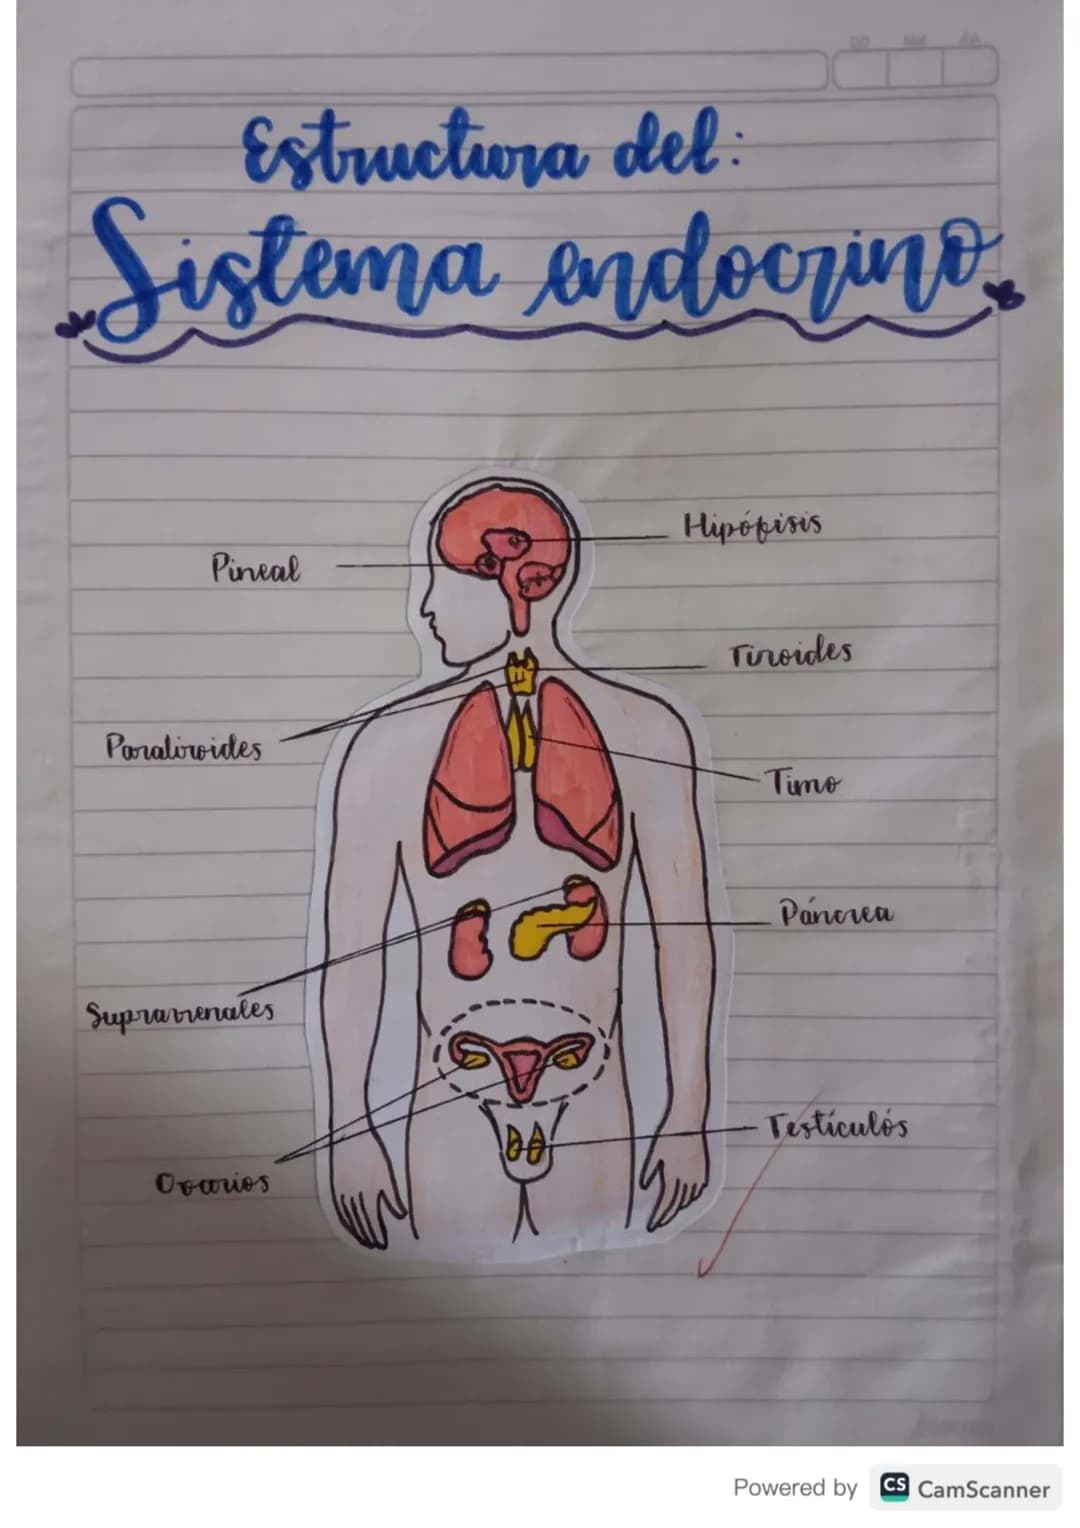 DD MM AA
Estructura del:
Sistema endocrino
Hipófisis
Pineal
Tiroides
Paratiroides
Timo
Páncrea
Suprarrenales
Testículos
Ovarios
Powered by CS CamScanner